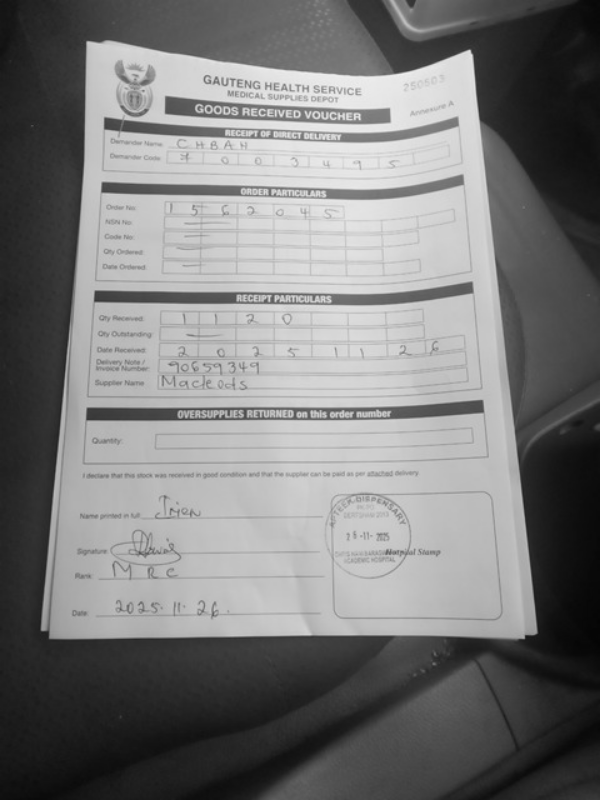 GAUTENG HEALTH SERVICE
MEDICAL SUPPLIES DEPOT
250503
GOODS RECEIVED VOUCHER
Annexure A
RECEIPT OF DIRECT DELIVERY
Demander Name: CHBAH
Demander Code: 003495
ORDER PARTICULARS
Order No: 1562045
NSN No:
Code No:
Qty Ordered:
Date Ordered:
RECEIPT PARTICULARS
Qty Received: 1120
Qty Outstanding:
Date Received: 20251126
Delivery Note /
Invoice Number: 90659349
Supplier Name Macleods
OVERSUPPLIES RETURNED on this order number
Quantity:
I declare that this stock was received in good condition and that the supplier can be paid as per attached delivery
Name printed in full:
Signature:
Rank: MRC
Date: 2025.11.26.
APTEEK-DISPENSARY
-11- 2025
ACADEMIC HOSPITAL
Hospital Stamp